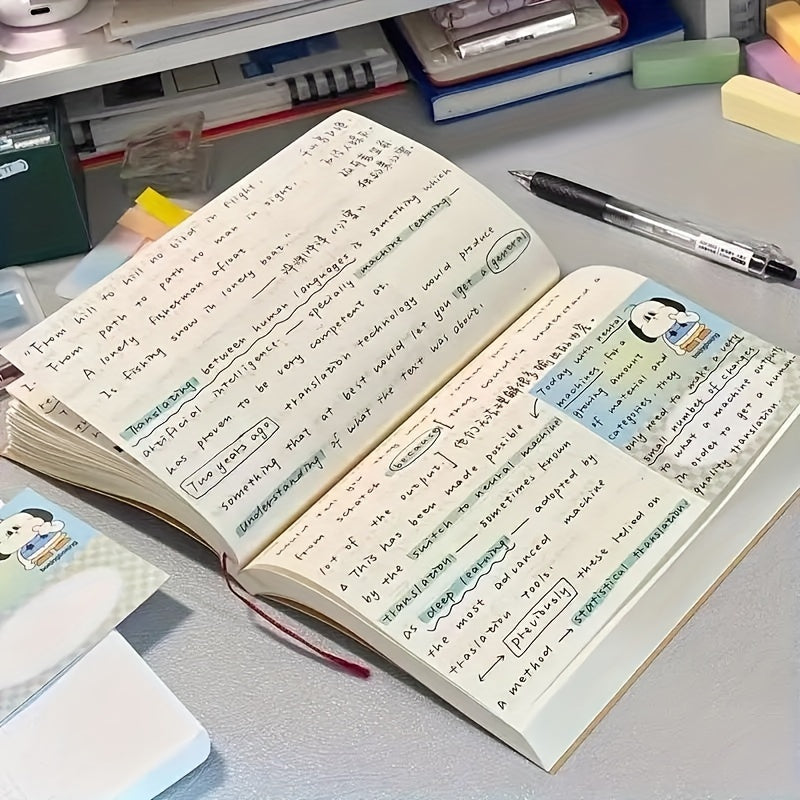 "From hill to hill no bird in flight.
From path to path no man in sight.
A lonely fisherman afloat
Is fishing snow in lonely boat."
千山鸟飞绝,
万径人踪灭.
孤舟蓑笠翁
独钓寒江雪.
Translating between human languages is something which
artificial intelligence — specially machine learning —
has proven to be very competent at.
Two years ago translation technology would produce
something that at best would let you get a general
understanding of what the text was about.
from scratch
lot of the output.]
because
△ This has been made possible
by the switch to neural machine
translation — sometimes known
as deep learning — adopted by
the most advanced machine
traslation tools.
←→ Previously these relied on
a method → statistical translation
Today with neural
machines for a
growing amount
of material and
categories they
only need to make a very
small number of changes
to what a machine outputs
in order to get a human
quality translation
bowingbowing
bowingbowing